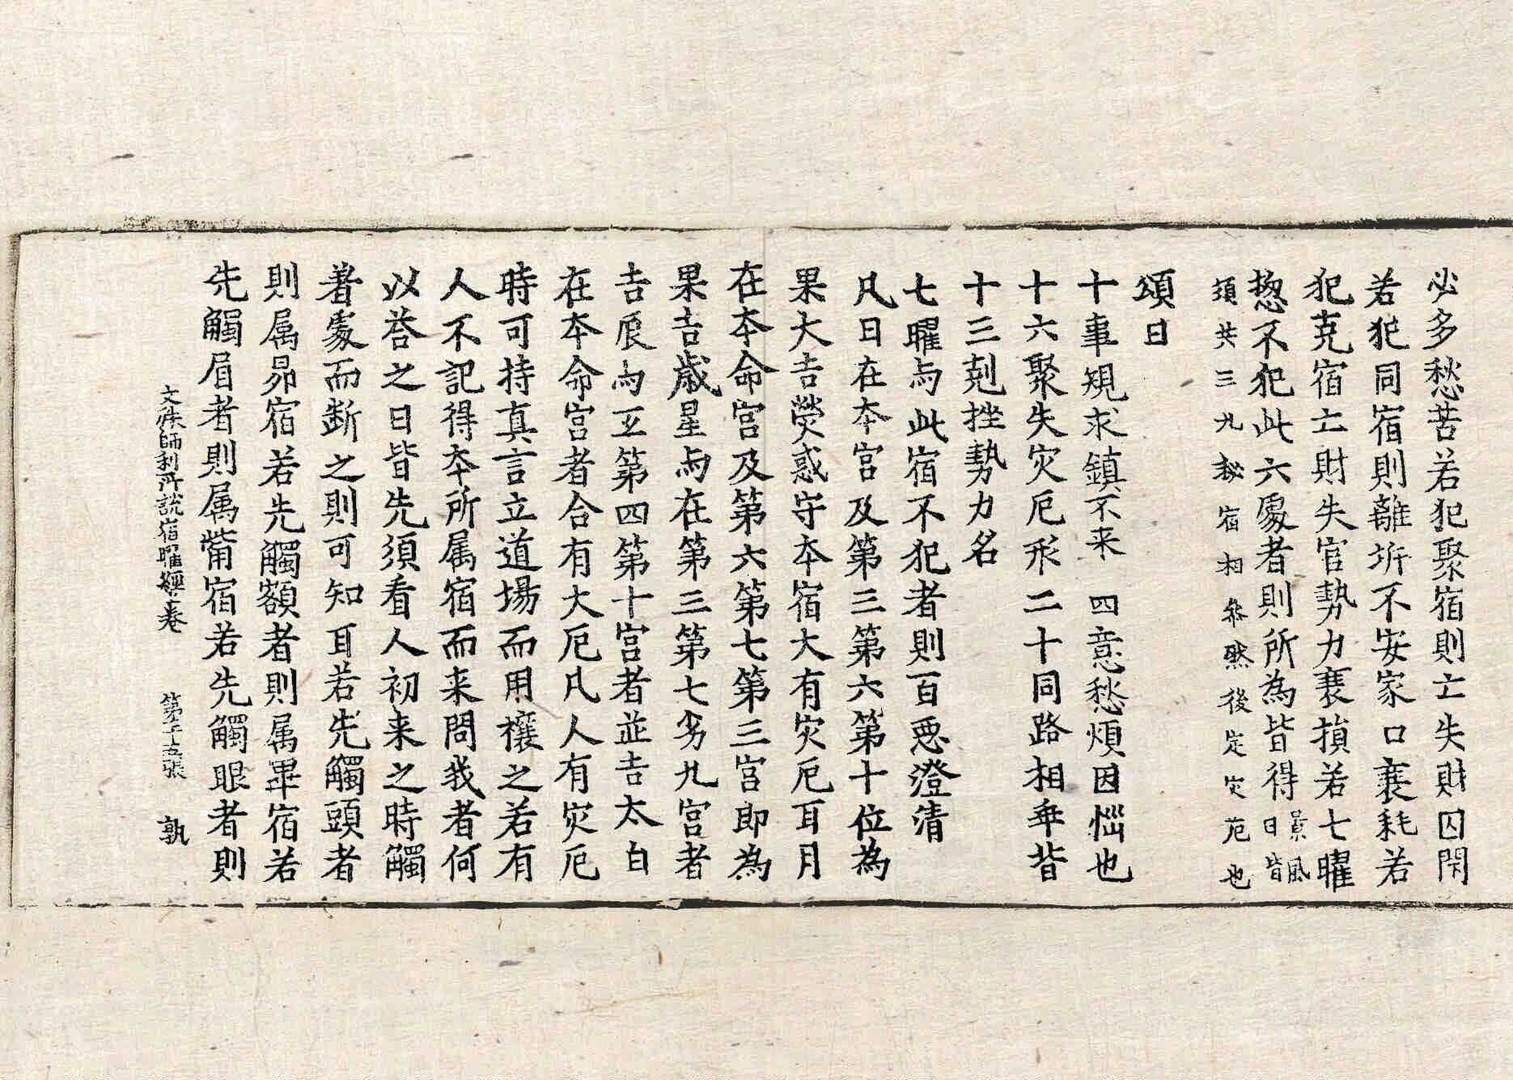 必多愁苦若犯聚宿則亡失財囚閇
若犯同宿則離坼不安家口衰耗若
犯克宿亡財失官勢力衰損若七曜
揔不犯此六處者則所為皆得
景風
日皆
須共三九秘宿相叅然後定灾厄也
頌曰
十事䂓求鎮不来 四意愁煩因惱也
十六聚失灾厄形 二十同路相乖背
十三剋挫勢力名
七曜与此宿不犯者則百惡澄清
凡日在夲宫及第三第六第十位為
果大吉熒惑守夲宿大有灾厄耳月
在夲命宫及第六第七第三宫即為
果吉歳星与在第三第七第九宫者
吉辰与在第四第十宫者並吉太白
在夲命宫者合有大厄凡人有灾厄
時可持真言立道場而用禳之若有
人不記得夲所属宿而来問我者何
以荅之曰皆先須看人初来之時觸
著處而断之則可知耳若先觸頭者
則属昴宿若先觸額者則属畢宿若
先觸眉者則属觜宿若先觸眼者則
文殊師利所說宿曜經卷 第十五張 孰